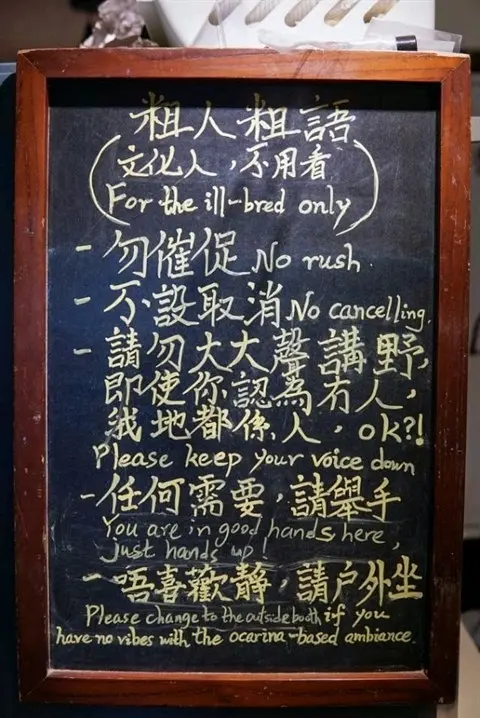 粗人粗語
(文化人，不用看
For the ill-bred only)
- 勿催促 No rush.
- 不設取消 No cancelling.
- 請勿大大聲講野，
即使你認為冇人，
我地都係人，ok?!
Please keep your voice down
- 任何需要，請舉手
You are in good hands here,
just hands up!
- 唔喜歡靜，請戶外坐
Please change to the outside booth if you
have no vibes with the ocarina-based ambiance.